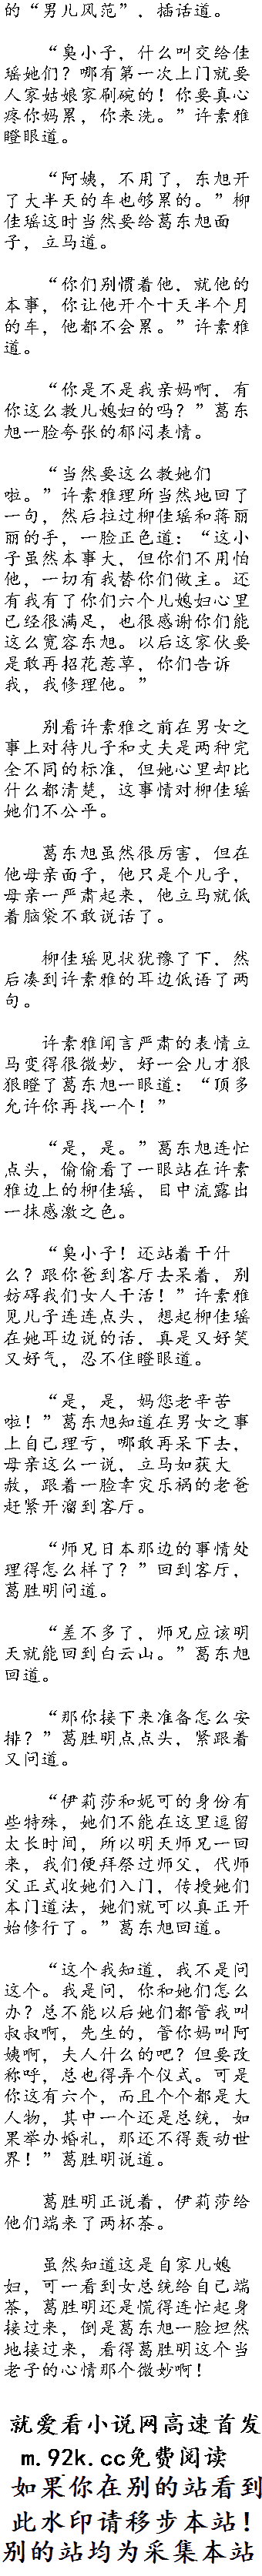 的“男儿风范”，插话道。
“臭小子，什么叫交给佳
瑶她们？哪有第一次上门就要
人家姑娘家刷碗的！你要真心
疼你妈累，你来洗。”许素雅
瞪眼道。
“阿姨，不用了，东旭开
了大半天的车也够累的。”柳
佳瑶这时当然要给葛东旭面
子，立马道。
“你们别惯着他，就他的
本事，你让他开个十天半个月
的车，他都不会累。”许素雅
道。
“你是不是我亲妈啊，有
你这么教儿媳妇的吗？”葛东
旭一脸夸张的郁闷表情。
“当然要这么教她们
啦。”许素雅理所当然地回了
一句，然后拉过柳佳瑶和蒋丽
丽的手，一脸正色道：“这小
子虽然本事大，但你们不用怕
他，一切有我替你们做主。还
有我有了你们六个儿媳妇心里
已经很满足，也很感谢你们能
这么宽容东旭。以后这家伙要
是敢再招花惹草，你们告诉
我，我修理他。”
别看许素雅之前在男女之
事上对待儿子和丈夫是两种完
全不同的标准，但她心里却比
什么都清楚，这事情对柳佳瑶
她们不公平。
葛东旭虽然很厉害，但在
他母亲面子，他只是个儿子，
母亲一严肃起来，他立马就低
着脑袋不敢说话了。
柳佳瑶见状犹豫了下，然
后凑到许素雅的耳边低语了两
句。
许素雅闻言严肃的表情立
马变得很微妙，好一会儿才狠
狠瞪了葛东旭一眼道：“顶多
允许你再找一个！”
“是，是。”葛东旭连忙
点头，偷偷看了一眼站在许素
雅边上的柳佳瑶，目中流露出
一抹感激之色。
“臭小子！还站着干什
么？跟你爸到客厅去呆着，别
妨碍我们女人干活！”许素雅
见儿子连连点头，想起柳佳瑶
在她耳边说的话，真是又好笑
又好气，忍不住瞪眼道。
“是，是，妈您老辛苦
啦！”葛东旭知道在男女之事
上自己理亏，哪敢再呆下去，
母亲这么一说，立马如获大
赦，跟着一脸幸灾乐祸的老爸
赶紧开溜到客厅。
“师兄日本那边的事情处
理得怎么样了？”回到客厅，
葛胜明问道。
“差不多了，师兄应该明
天就能回到白云山。”葛东旭
回道。
“那你接下来准备怎么安
排？”葛胜明点点头，紧跟着
又问道。
“伊莉莎和妮可的身份有
些特殊，她们不能在这里逗留
太长时间，所以明天师兄一回
来，我们便拜祭过师父，代师
父正式收她们入门，传授她们
本门道法，她们就可以真正开
始修行了。”葛东旭回道。
“这个我知道，我不是问
这个。我是问，你和她们怎么
办？总不能以后她们都管我叫
叔叔啊，先生的，管你妈叫阿
姨啊，夫人什么的吧？但要改
称呼，总也得弄个仪式。可是
你这有六个，而且个个都是大
人物，其中一个还是总统，如
果举办婚礼，那还不得轰动世
界！”葛胜明说道。
葛胜明正说着，伊莉莎给
他们端来了两杯茶。
虽然知道这是自家儿媳
妇，可一看到女总统给自己端
茶，葛胜明还是慌得连忙起身
接过来，倒是葛东旭一脸坦然
地接过来，看得葛胜明这个当
老子的心情那个微妙啊！
就爱看小说网高速首发
m.92k.cc免费阅读
如果你在别的站看到
此水印请移步本站！
别的站均为采集本站